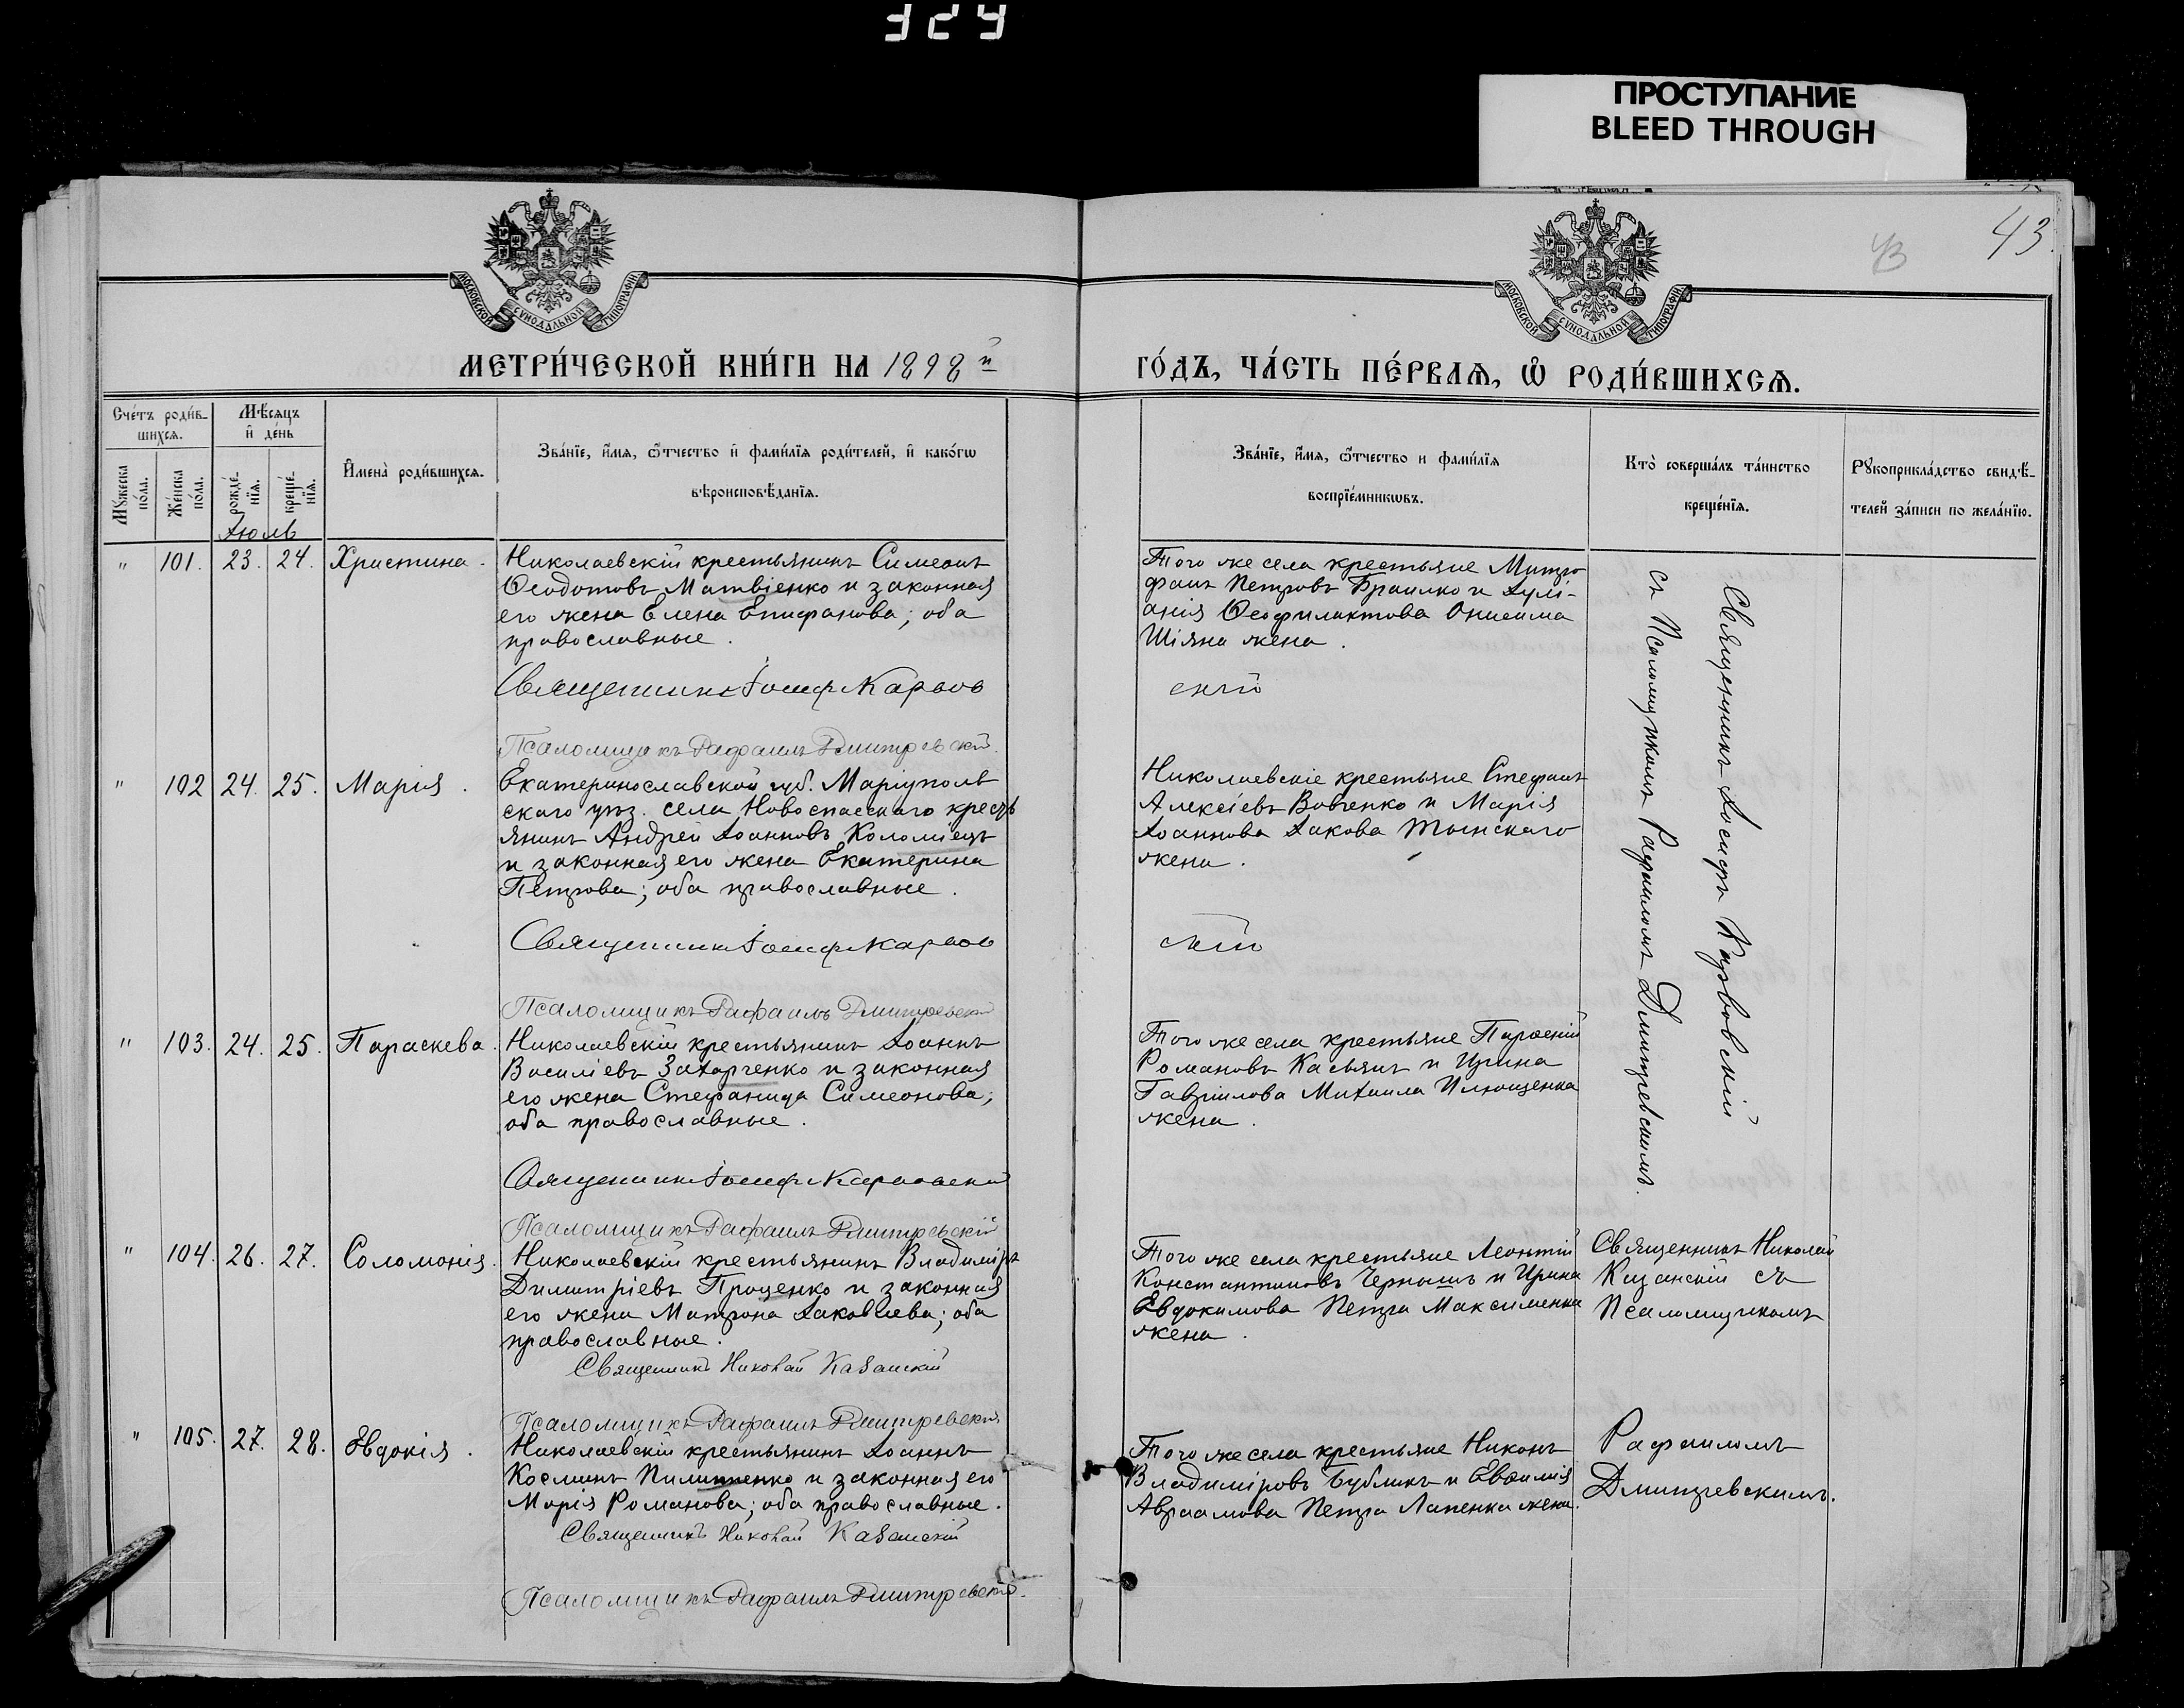 324
ПРОСТУПАНИЕ
BLEED THROUGH
43
43.
МОСКОВСКОЙ СѴНОДАЛЬНОЙ ТИПОГРАФІИ
МОСКОВСКОЙ СѴНОДАЛЬНОЙ ТИПОГРАФІИ
МЕТРИ́ЧЕСКОЙ КНИ́ГИ НА 1898й
ГО́ДЪ, ЧА́СТЬ ПЕ́РВАЯ, Ѡ РОДИ́ВШИХСЯ.
Сче́тъ роди́в-
шихся.
Мѣ́сяцъ
и҆ де́нь
Мꙋ́жеска по́ла.
Же́нска по́ла.
рожде́-
нїѧ.
креще́-
нїѧ.
И҆мена̀ роди́вшихся.
Зва́нїе, и҆́мѧ, ѻ҆́тчество и҆ фами́лїѧ роди́телей, и҆ како́гѡ
вѣроисповѣ́данїѧ.
Зва́нїе, и҆́мѧ, ѻ҆́тчество и фами́лїѧ
воспрїе́мникѡвъ.
Кто̀ соверша́лъ та́инство
креще́нїѧ.
Рꙋкоприкла́дство свидѣ́-
телей за́писи по жела́нїю.
Іюль
" 101. 23. 24. Христина.
Николаевскій крестьянинъ Симеонъ
Ѳеодотовъ Матвіенко и законная
его жена Елена Епифанова; оба
православные.
Священникъ Іосифъ Карвов
Псаломщикъ Рафаилъ Дмитревскій.
Того же села крестьяне Митро
фанъ Петровъ Браилко и Іулі-
анія Ѳеофилактова Онисима
Шіяна жена.
скій
" 102 24. 25. Марія.
Екатеринославской губ. Маріуполь
скаго уѣз. села Новоспасскаго кресть
янинъ Андрей Іоанновъ Коломіецъ
и законная его жена Екатерина
Петрова; оба православные.
Священникъ Іосифъ Карвов
Псаломщикъ Рафаилъ Дмитревскій
Николаевскіе крестьяне Стефанъ
Алексіевъ Вовченко и Марія
Іоаннова Іакова Тынскаго
жена.
скій
" 103. 24. 25. Параскева.
Николаевскій крестьянинъ Іоаннъ
Василіевъ Захарченко и законная
его жена Стефанида Симеонова;
оба православные.
Священникъ Іосифъ Карвовскій
Псаломщикъ Рафаилъ Дмитревскій
Того же села крестьяне Парѳеній
Романовъ Касьянъ и Ирина
Гавріилова Михаила Илющенка
жена.
Священникъ Іосифъ Карвовскій
съ Псаломщикомъ Рафаиломъ Дмитревскимъ.
" 104. 26. 27. Соломонія.
Николаевскій крестьянинъ Владиміръ
Димитріевъ Проценко и законная
его жена Матрона Іаковлева; оба
православные.
Священникъ Николай Казанскій
Псаломщикъ Рафаилъ Дмитревскій
Того же села крестьяне Леонтій
Константиновъ Чернышъ и Ирина
Евдокимова Петра Максименка
жена.
Священникъ Николай
Казанскій съ
Псаломщикомъ
" 105. 27. 28. Евдокія.
Николаевскій крестьянинъ Іоаннъ
Косминъ Пилипенко и законная его
Марія Романова; оба православные.
Священникъ Николай Казанскій
Псаломщикъ Рафаилъ Дмитревскій.
Того же села крестьяне Никонъ
Владиміровъ Бубликъ и Евѳимія
Авраамова Петра Лапенка жена.
Рафаиломъ
Дмитревскимъ.